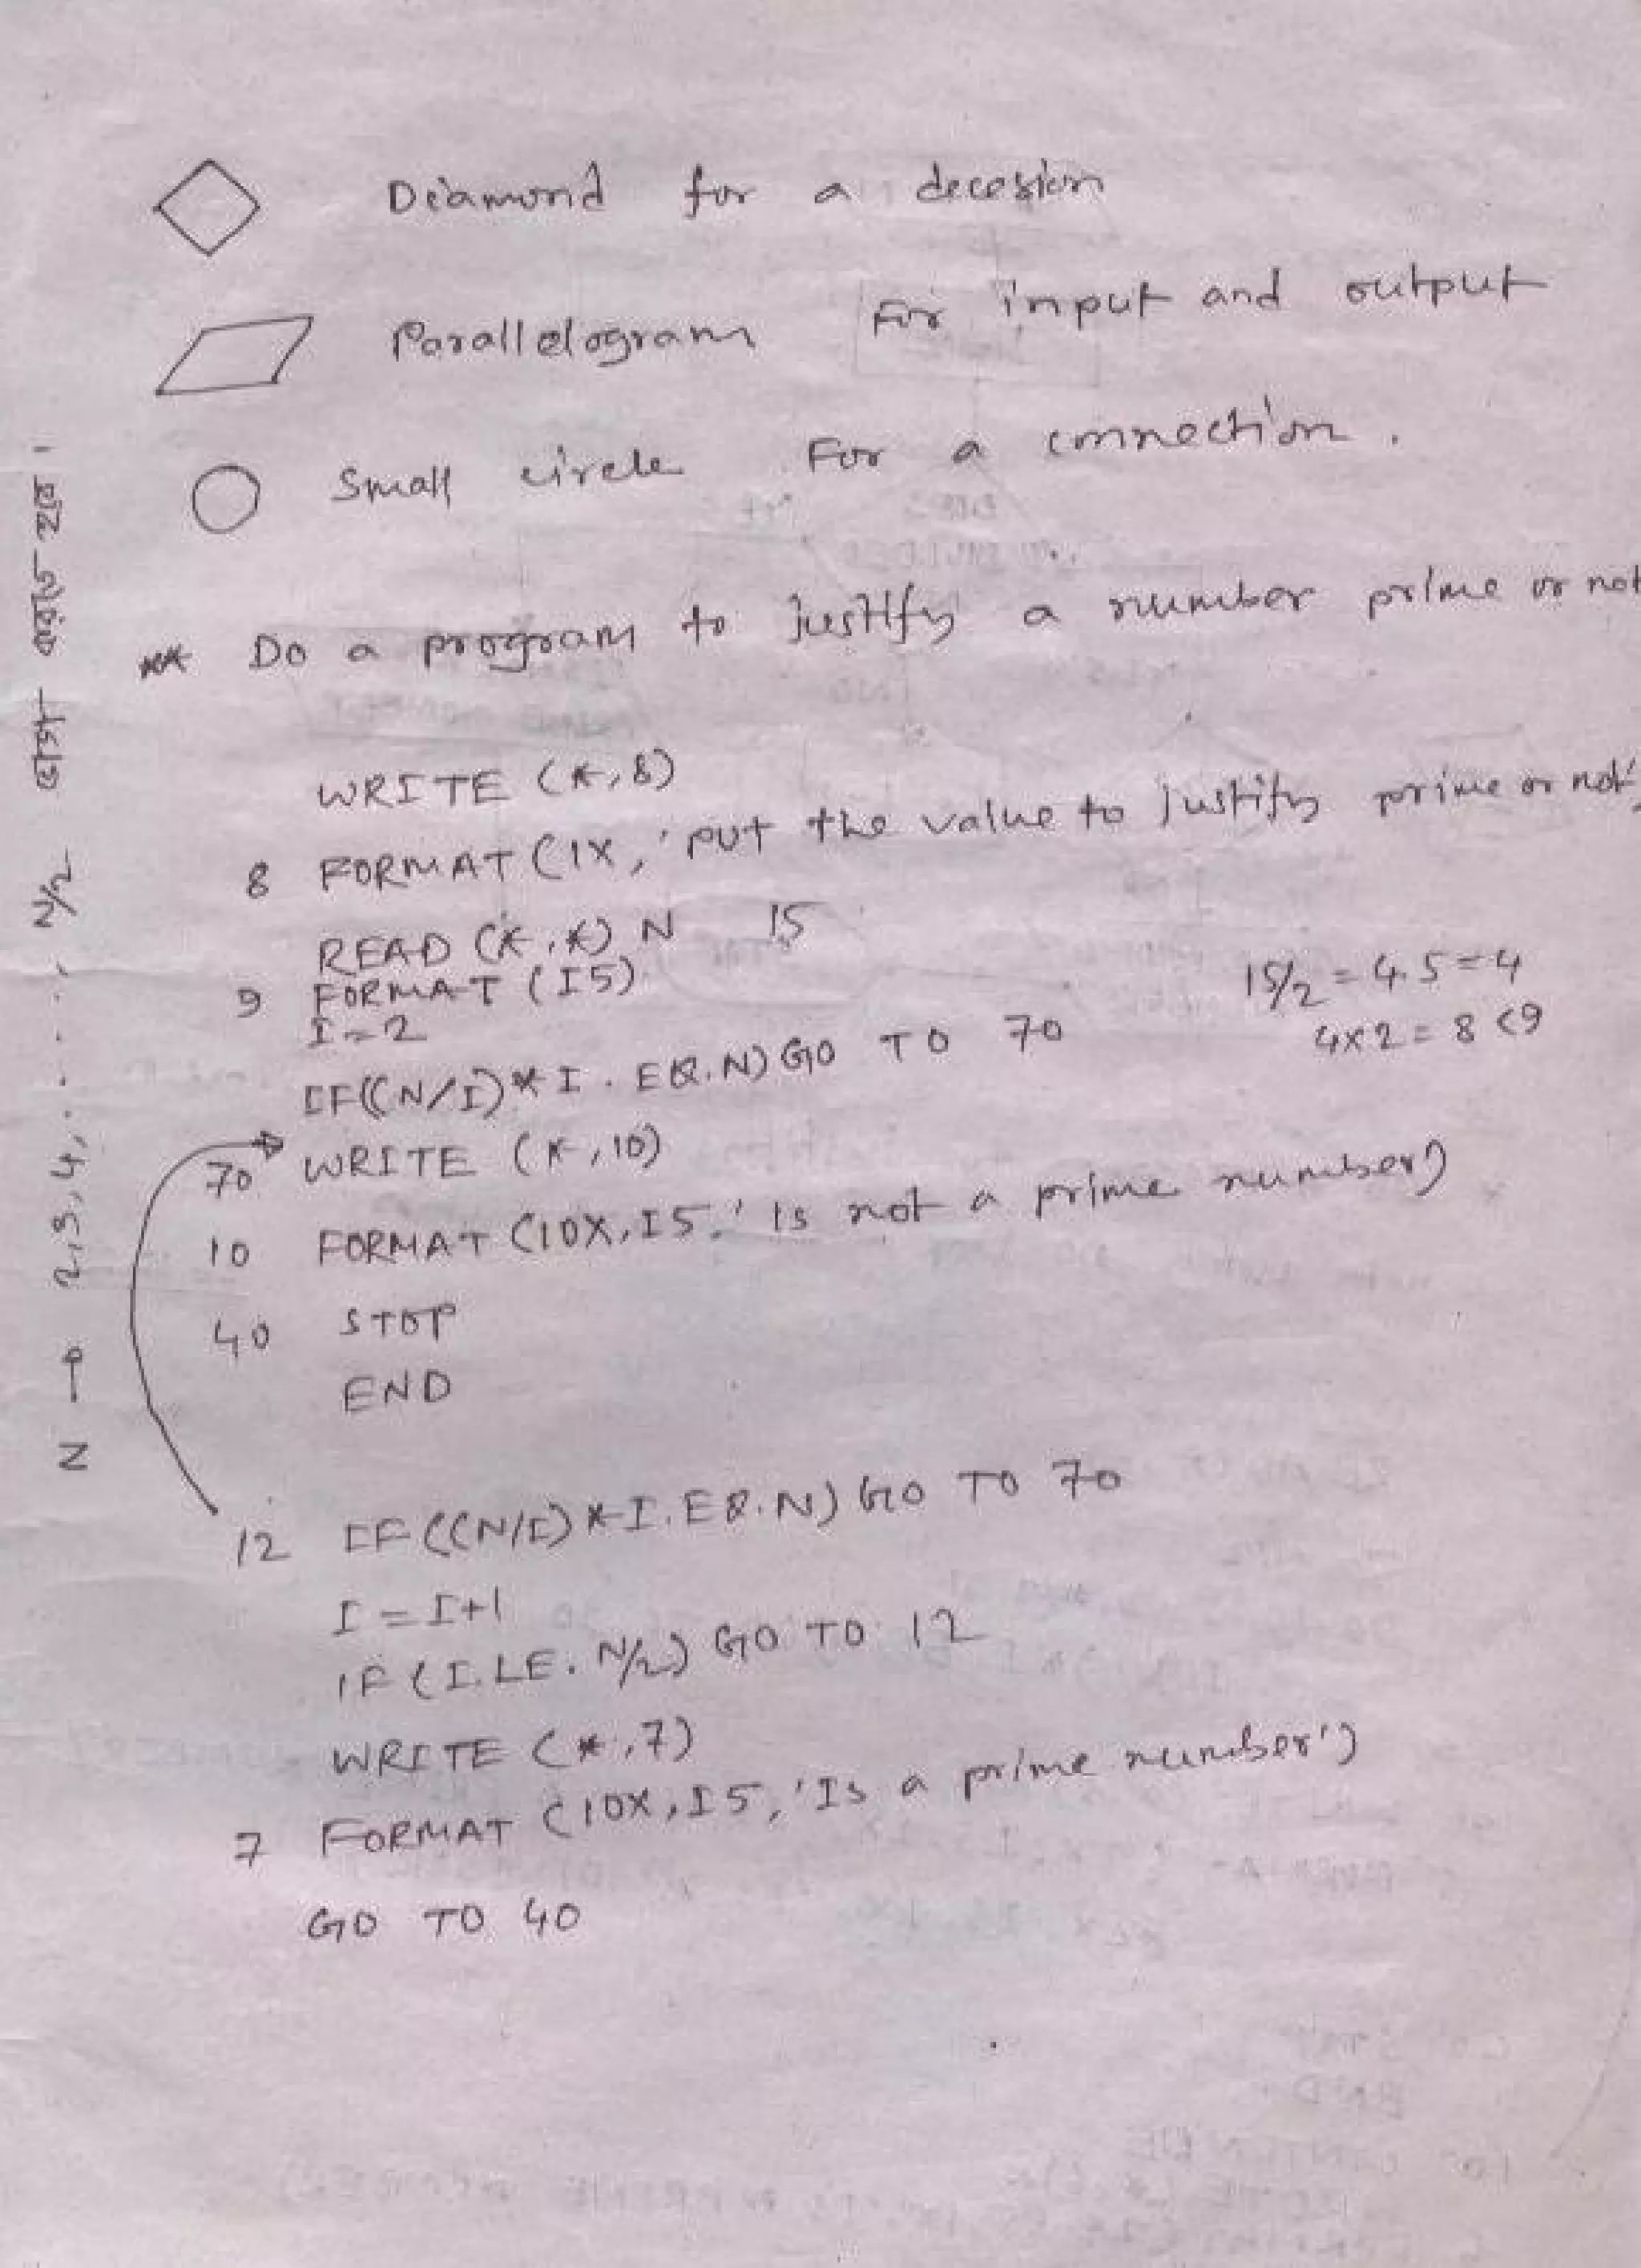 Diamond for a decesion
Parallelogram For input and output
Small circle For a connection.
** Do a program to justify a number prime or not
WRITE (*,8)
8 FORMAT (1X, 'put the value to justify prime or not',
READ (*,*) N 15
9 FORMAT (I5)
I=2
15/2 = 4.5=4
4x2 = 8 <9
IF((N/I)*I.EQ.N) GO TO 70
70 WRITE (*,10)
10 FORMAT (10X,I5,' Is not a prime number)
40 STOP
END
12 IF ((N/I)*I.EQ.N) GO TO 70
I = I+1
IF (I.LE. N/2) GO TO 12
WRITE (*,7)
7 FORMAT (10X,I5,'Is a prime number')
GO TO 40
N → 2,3,4, . . . . , N/2 ভাগ করতে হবে।